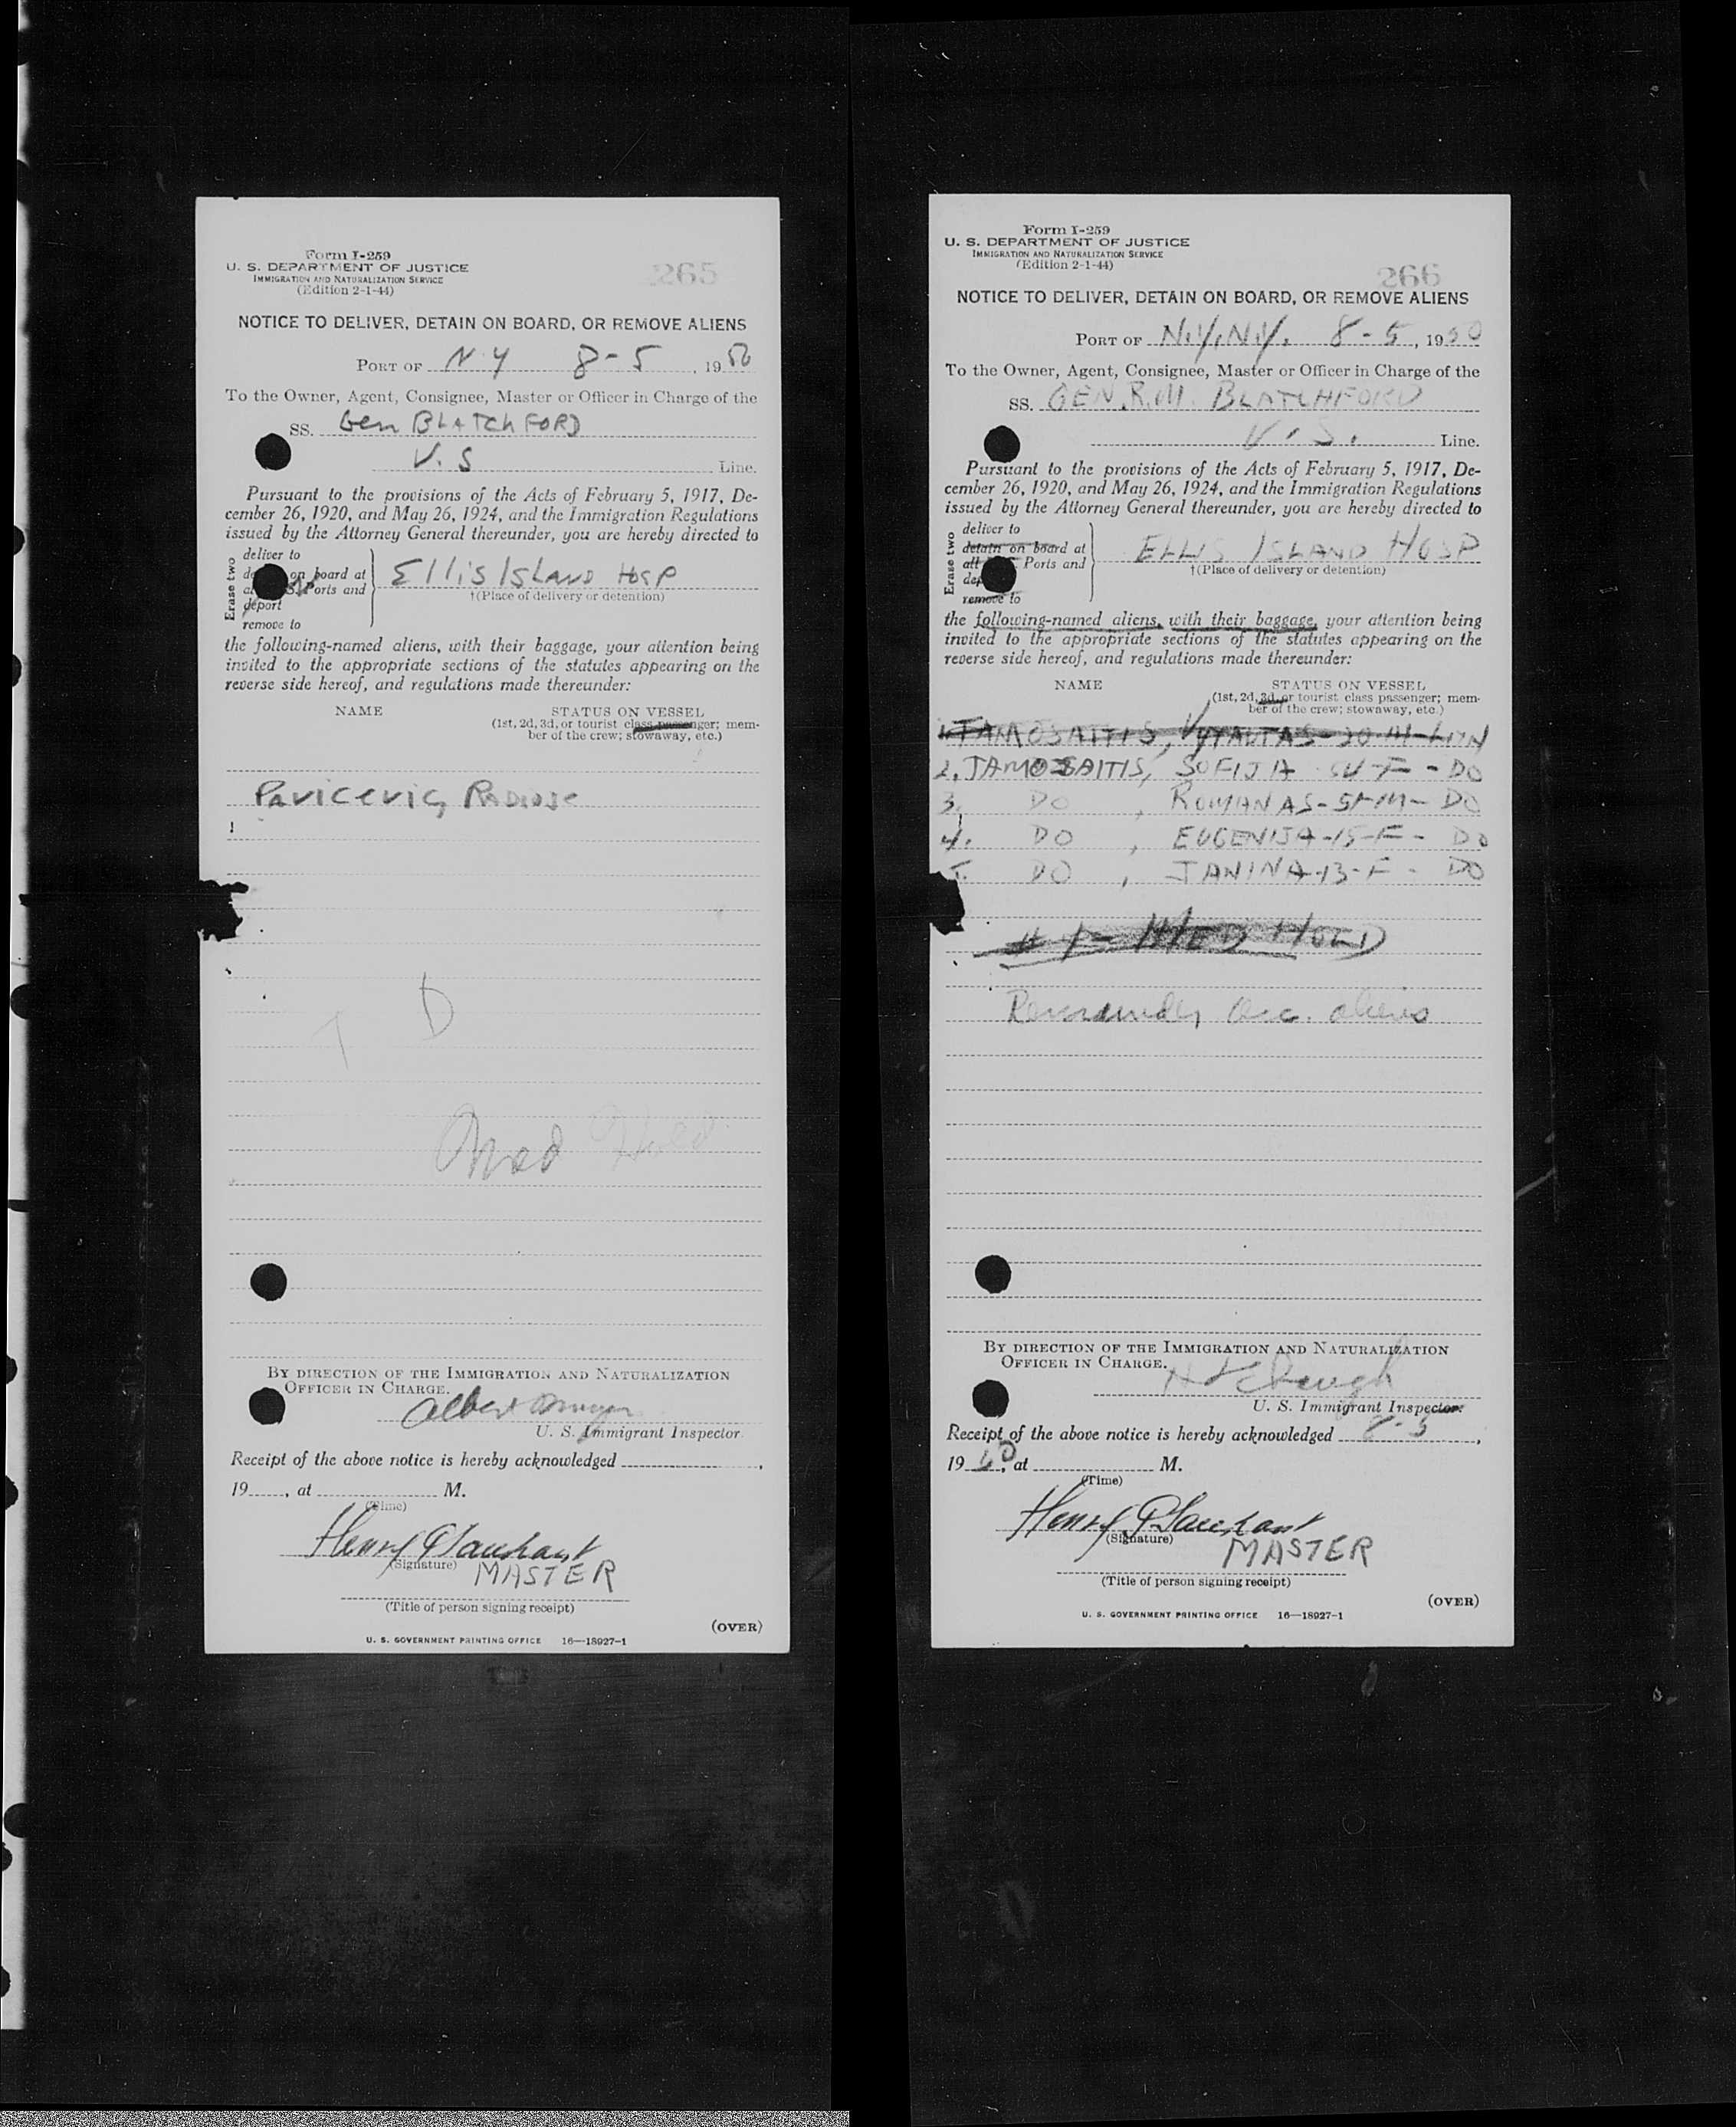 Form I-259
U. S. DEPARTMENT OF JUSTICE
IMMIGRATION AND NATURALIZATION SERVICE
(Edition 2-1-44)
265
NOTICE TO DELIVER, DETAIN ON BOARD, OR REMOVE ALIENS
PORT OF N.Y 8-5, 1950
To the Owner, Agent, Consignee, Master or Officer in Charge of the
SS. Gen BLATCHFORD
U.S Line.
Pursuant to the provisions of the Acts of February 5, 1917, De-
cember 26, 1920, and May 26, 1924, and the Immigration Regulations
issued by the Attorney General thereunder, you are hereby directed to
Erase two
deliver to
on board at
Ports and
deport
remove to
Ellis Island Hosp
†(Place of delivery or detention)
the following-named aliens, with their baggage, your attention being
invited to the appropriate sections of the statutes appearing on the
reverse side hereof, and regulations made thereunder:
NAME STATUS ON VESSEL
(1st, 2d, 3d, or tourist class passenger; mem-
ber of the crew; stowaway, etc.)
Pavicevic,
D
Med Hold
BY DIRECTION OF THE IMMIGRATION AND NATURALIZATION
OFFICER IN CHARGE.
Albert
U. S. Immigrant Inspector.
Receipt of the above notice is hereby acknowledged ,
19 , at M.
(Time)
Henry
(Signature)
MASTER
(Title of person signing receipt)
(OVER)
U. S. GOVERNMENT PRINTING OFFICE 16—18927-1
Form I-259
U. S. DEPARTMENT OF JUSTICE
IMMIGRATION AND NATURALIZATION SERVICE
(Edition 2-1-44)
266
NOTICE TO DELIVER, DETAIN ON BOARD, OR REMOVE ALIENS
PORT OF N.Y., N.Y. 8-5, 1950
To the Owner, Agent, Consignee, Master or Officer in Charge of the
SS. GEN. R.M. BLATCHFORD
U.S. Line.
Pursuant to the provisions of the Acts of February 5, 1917, De-
cember 26, 1920, and May 26, 1924, and the Immigration Regulations
issued by the Attorney General thereunder, you are hereby directed to
Erase two
deliver to
detain on board at
all Ports and
remove to
ELLIS ISLAND HOSP
†(Place of delivery or detention)
the following-named aliens, with their baggage, your attention being
invited to the appropriate sections of the statutes appearing on the
reverse side hereof, and regulations made thereunder:
NAME STATUS ON VESSEL
(1st, 2d, 3d, or tourist class passenger; mem-
ber of the crew; stowaway, etc.)
1. TAMOSAITIS, VYTAUTAS-20-M-LITH
2. TAMOSAITIS, SOFIJA F - DO
3. DO, ROMANAS-51-M- DO
4. DO, EUGENIJA-15-F- DO
5. DO, JANINA-13-F- DO
#1- MED HOLD
Remainder Acc. aliens
BY DIRECTION OF THE IMMIGRATION AND NATURALIZATION
OFFICER IN CHARGE.
U. S. Immigrant Inspector.
Receipt of the above notice is hereby acknowledged 8-5,
1950, at M.
(Time)
Henry
(Signature)
MASTER
(Title of person signing receipt)
(OVER)
U. S. GOVERNMENT PRINTING OFFICE 16—18927-1